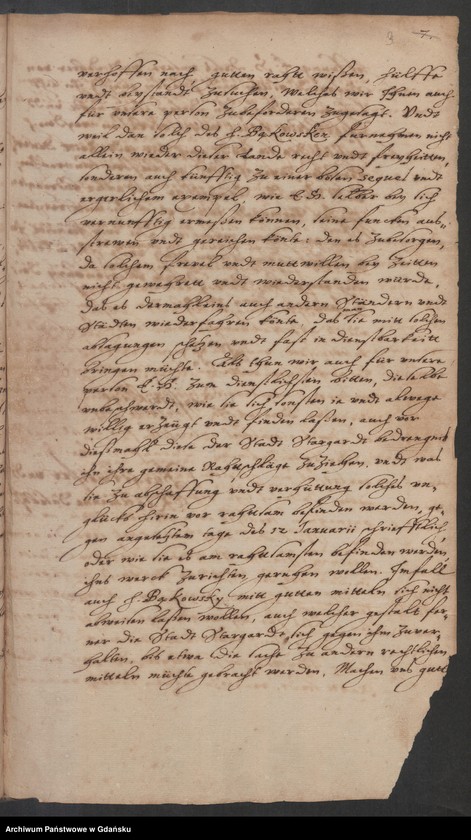 3
verhoffen nach, gutten raht wissen, hülffe
vndt beystandt zusuchen, Welches wir Ihnen auch
für vnsere person zubefördern zugesagt. Vndt
weil dan solch des H. Bąkowsken fürnehmen nicht
allein wieder dieser Lande recht vndt freyheitten,
sondern auch künfftig zu einer bösen sequel vndt
ergerlichem exempel, wie E. H. selber bey sich
vernunfftig ermessen können, seine funcken aus-
strewen vndt gereichen könte: den es zubesorgen,
da solchem frevel vndt muttwillen bey Zeitten
nicht gewehrett vndt wiederstanden würde,
das es dermahleins auch andern Ständern vndt
Städten wiederfahren könte, das sie mitt solchen
ablagungen schatzen vndt fast in dienstbarkeitt
bringen müchte. Als thun wir auch für vnsere
person E. H. zum dienstlichsten bitten, dieselbe
vnbeschwerdt, wie sie sich sonsten je vndt alwege
willig erzeugt vndt finden lassen, auch vor
dießmahl diese der Stadt Stargardt bedrengnus
in ihre gemeine Rahtschläge zuziehen, vndt was
sie zu abschaffung vndt verhüttung solches vn-
glücks ihnen vor rahtsam befinden werden, ge-
gen angesetztem tage des 12 Januarii schriefftlich,
oder wie sie es am rahtsamsten befinden werden,
ins werck zurichten, geruhen wollen. Im fall
auch H. Bąkowsky mitt gutten mitteln sich nicht
abweisen lassen wollen, auch welcher gestalt fer-
ner die Stadt Stargardt sich gegen ihm zuver-
halten, bis etwa die sache zu andern rechtlichen
mitteln müchte gebracht werden. Machen vns gutte
Archiwum Państwowe w Gdańsku